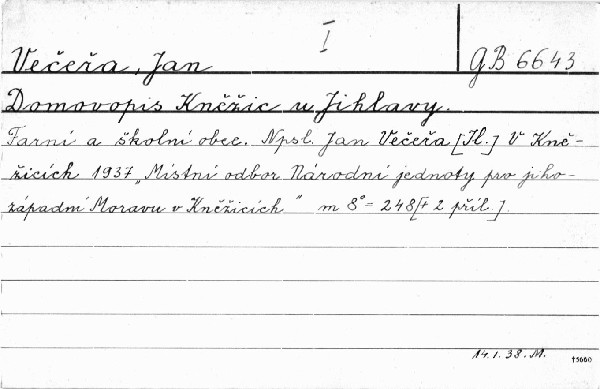 I
Večeřa, Jan GB 6643
Domovopis Kněžic u Jihlavy.
Farní a školní obec. Npsl. Jan Večeřa [Il.] V Kně-
žicích 1937 „Místní odbor Národní jednoty pro jiho-
západní Moravu v Kněžicích" m 8° = 248 [+ 2 příl.].
14.1.38.M.
15660